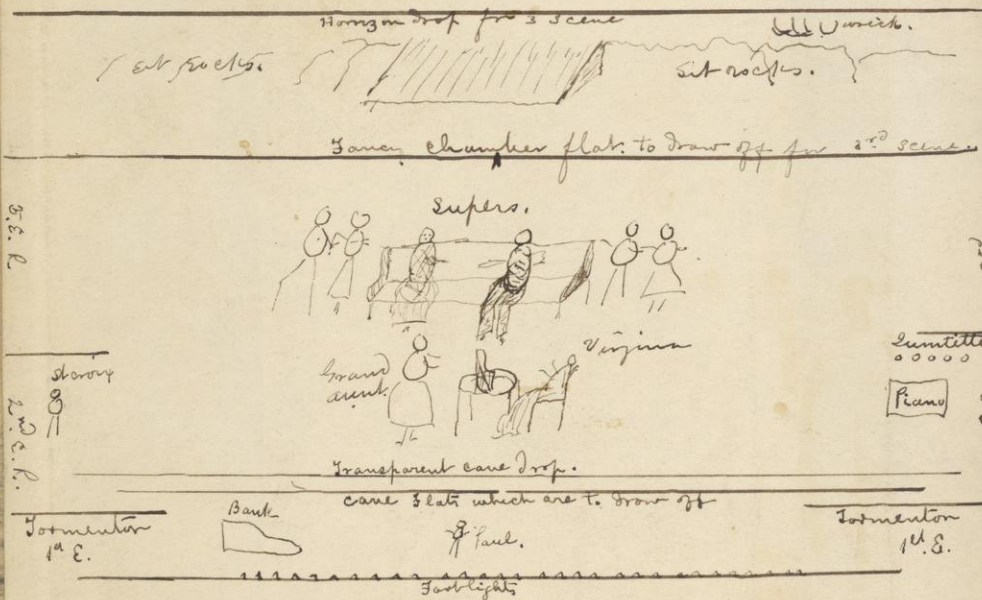 Horizon drop for 3 scene
wreck.
Set rocks.
Set rocks.
Fancy chamber flat. to draw off for 3rd scene.
Supers.
3.E.R
Virginia
Grand
aunt.
St croix
2nd E.R.
Piano
Transparent cave drop.
cave Flats which are to draw off
Tormentor
1st E.
Bank
Paul.
Tormentor
1st E.
Footlights